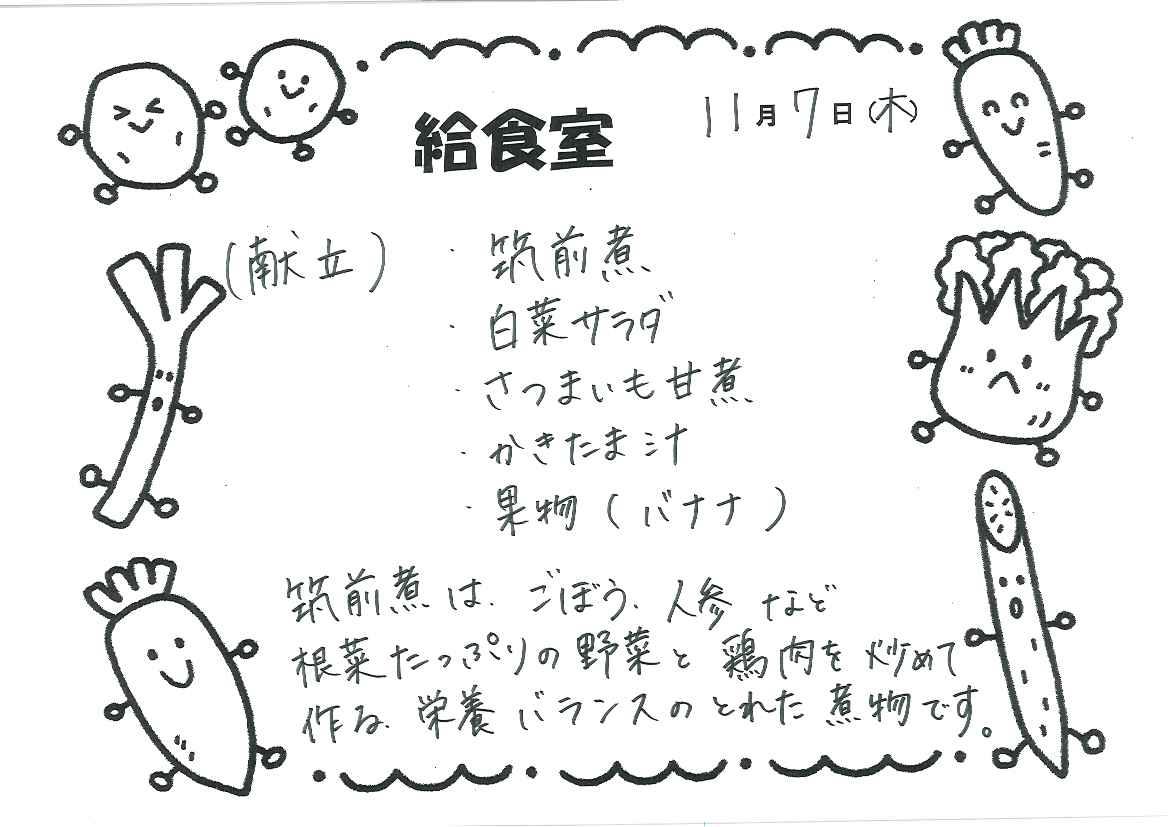 11月7日(木)
給食室
(献立)・筑前煮
・白菜サラダ
・さつまいも甘煮
・かきたま汁
・果物(バナナ)
筑前煮は、ごぼう、人参など
根菜たっぷりの野菜と鶏肉を炒めて
作る、栄養バランスのとれた煮物です。